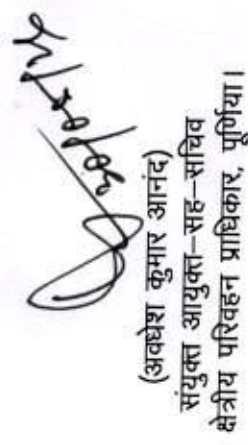 (अवधेश कुमार आनंद)
संयुक्त आयुक्त–सह–सचिव
क्षेत्रीय परिवहन प्राधिकार, पूर्णियां।